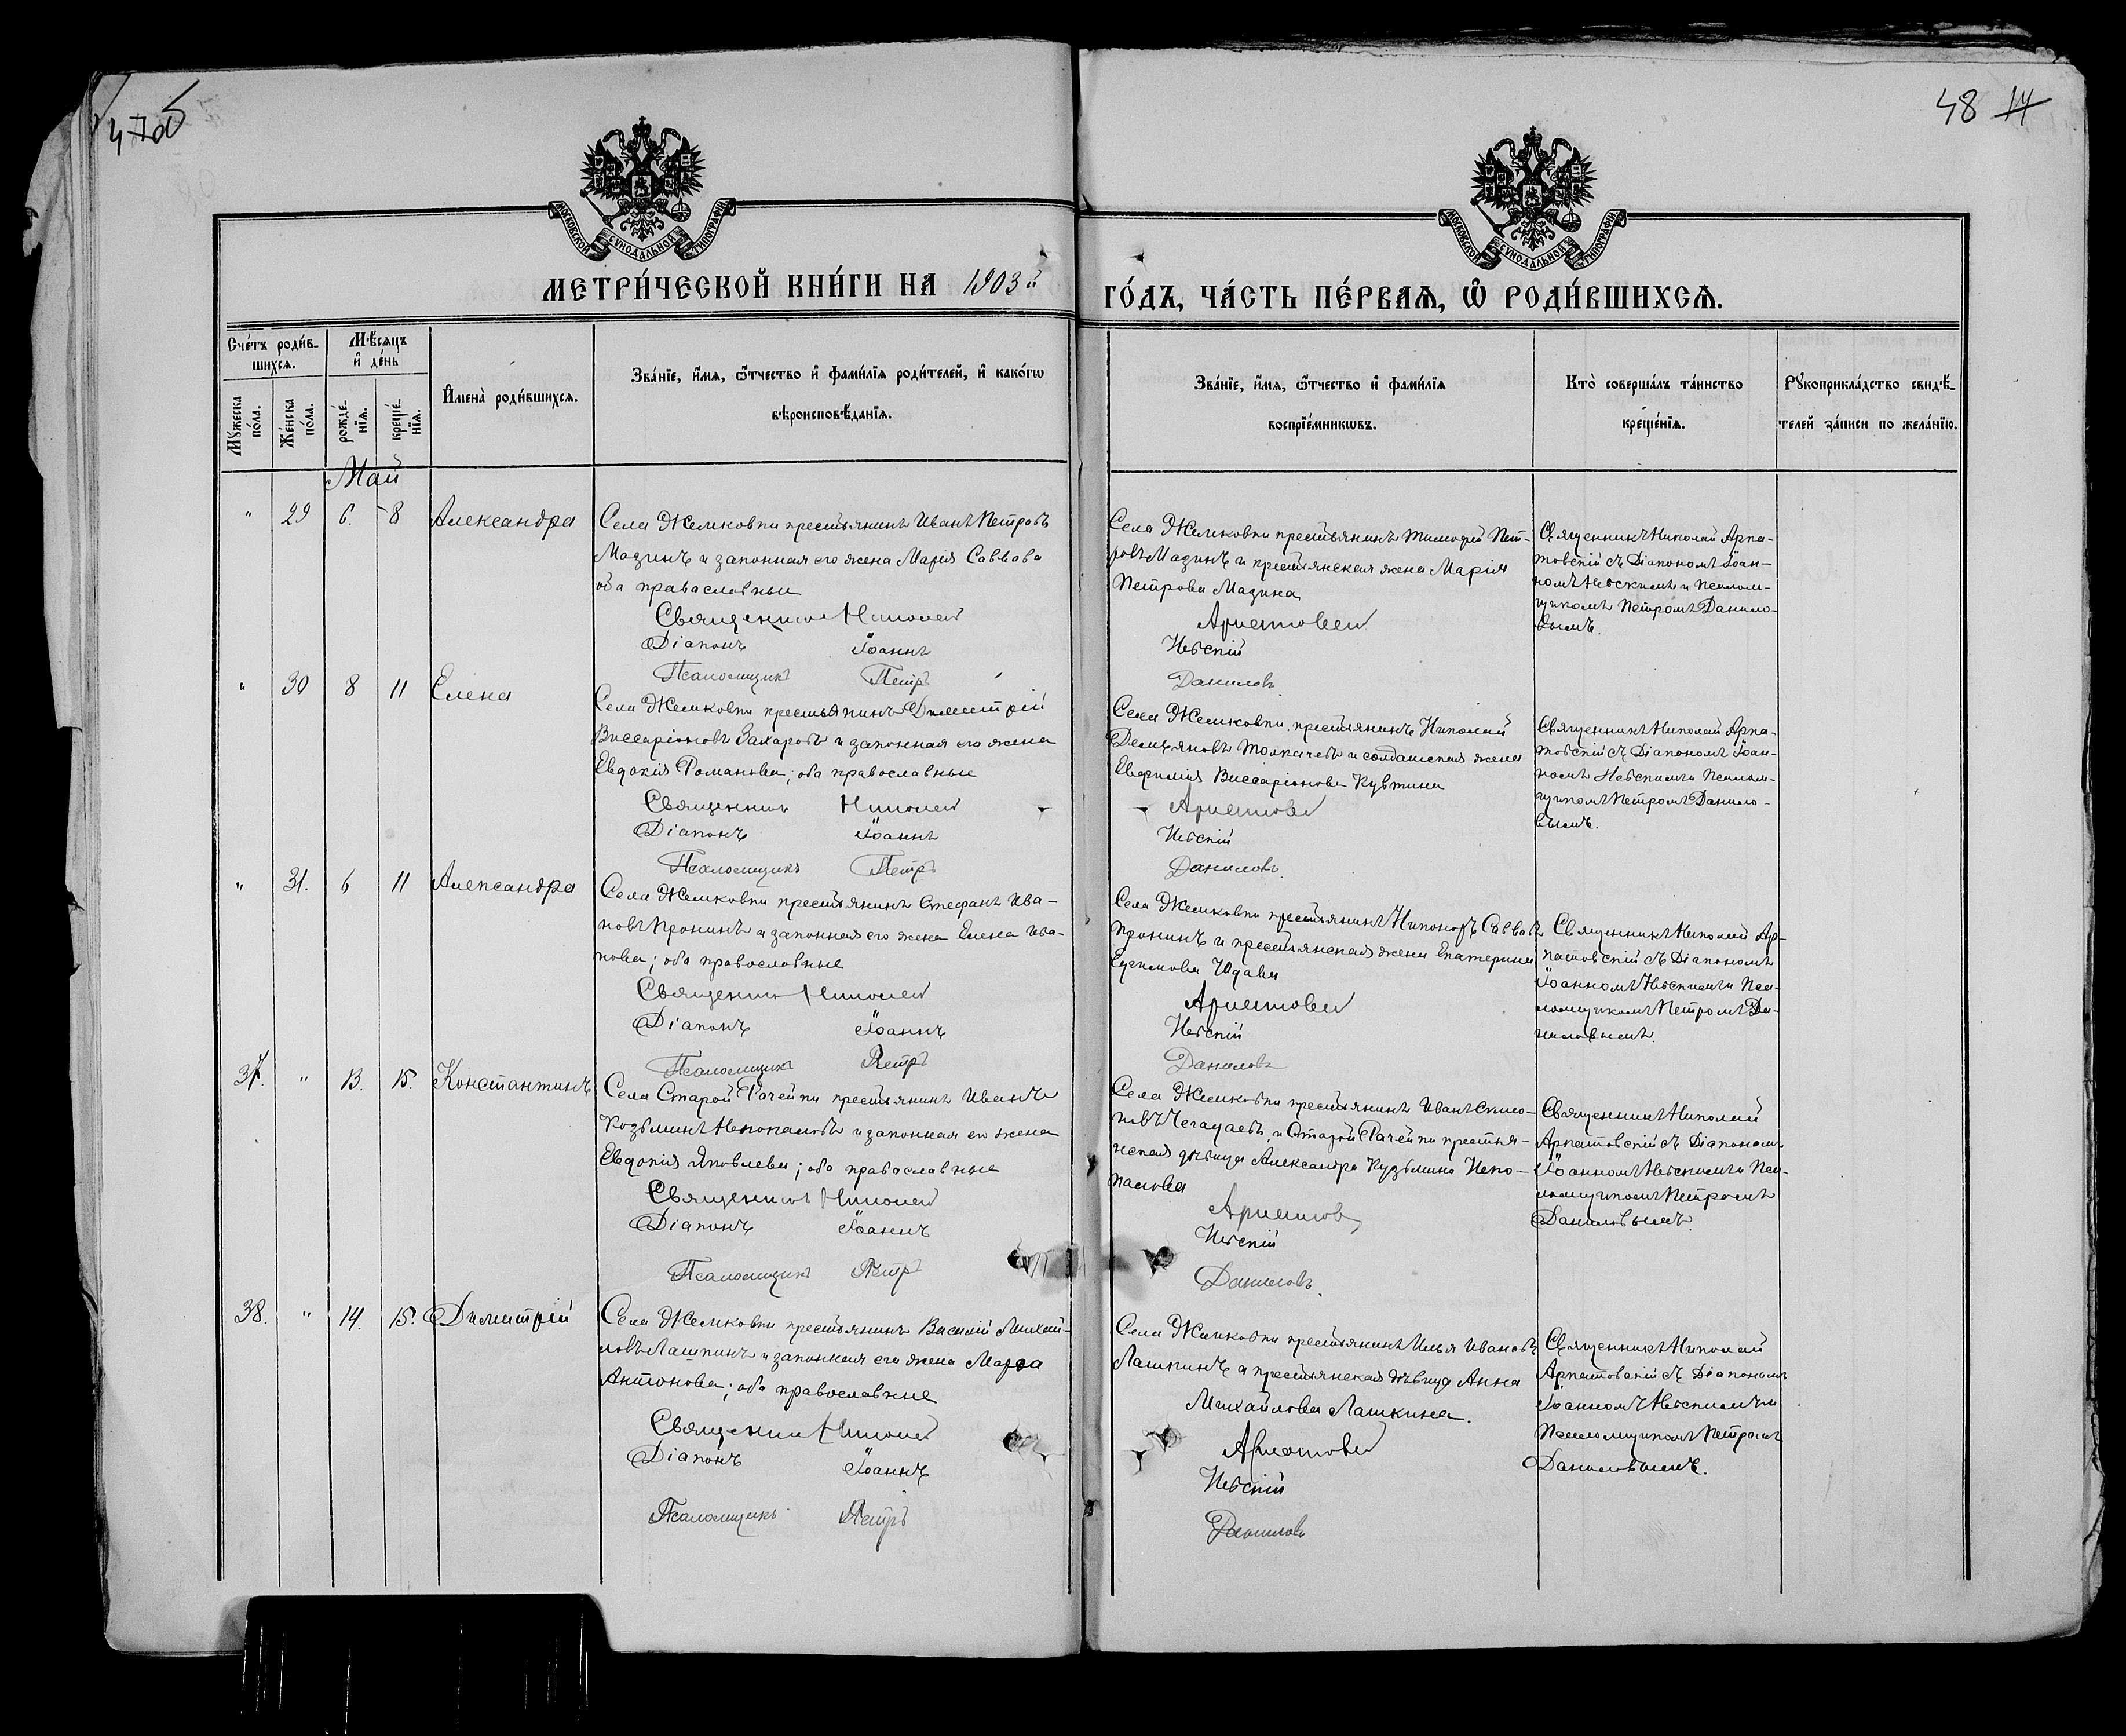 47об
48 17
МОСКОВСКОЙ СѴНОДАЛЬНОЙ ТИПОГРАФІИ
МОСКОВСКОЙ СѴНОДАЛЬНОЙ ТИПОГРАФІИ
МЕТРИ́ЧЕСКОЙ КНИ́ГИ НА 1903й
ГО́ДЪ, ЧА́СТЬ ПЕ́РВАѦ, Ѡ҃ РОДИ́ВШИХСѦ.
Сче́тъ роди́в-
шихсѧ.
Мꙋ́жеска по́ла.
Же́нска по́ла.
Мѣ́сѧцъ
и҆ де́нь
рожде́-
нїѧ.
креще́-
нїѧ.
И҆мена̀ роди́вшихсѧ.
Зва́нїе, и҆́мѧ, ѻ҆́тчество и҆ фами́лїѧ роди́телей, и҆ како́гѡ
вѣроисповѣ́данїѧ.
Зва́нїе, и҆́мѧ, ѻ҆́тчество и҆ фами́лїѧ
воспрїе́мникѡвъ.
Кто̀ соверша́лъ та́инство
креще́нїѧ.
Рꙋкоприкла́дство свидѣ́-
телей за́писи по жела́нїю.
Май
" 29 6. 8 Александра
Села Жемковки крестьянинъ Иванъ Петровъ
Мазинъ и законная его жена Марія Саввова
оба православные
Священникъ Николай
Діаконъ Іоаннъ
Псаломщикъ Петръ
Села Жемковки крестьянинъ Тимофей Пет-
ровъ Мазинъ и крестьянская жена Марія
Петрова Мазина
Архатовскій
Невскій
Даниловъ
Священникъ Николай Арха-
товскій съ Діакономъ Іоан-
номъ Невскимъ и Псалом-
щикомъ Петромъ Данило-
вымъ.
" 30 8 11 Елена
Села Жемковки крестьянинъ Димитрій
Виссаріоновъ Захаровъ и законная его жена
Евдокія Романова; оба православные
Священникъ Николай
Діаконъ Іоаннъ
Псаломщикъ Петръ
Села Жемковки крестьянинъ Николай
Демьяновъ Толкачевъ и солдатская жена
Евфимія Виссаріонова
Невскій
Даниловъ
Священникъ Николай Арха-
товскій съ Діакономъ Іоан-
номъ Невскимъ и Псалом-
щикомъ Петромъ Данило-
вымъ.
" 31. 6 11 Александра
Села Жемковки крестьянинъ Стефанъ Ива-
новъ Пронинъ и законная его жена Елена Ива-
нова; оба православные
Священникъ Николай
Діаконъ Іоаннъ
Псаломщикъ Петръ
Села Жемковки крестьянинъ Никоноръ Саввовъ
Пронинъ и крестьянская жена Екатерина
Невскій
Даниловъ
Священникъ Николай Ар-
хатовскій съ Діакономъ
Іоанномъ Невскимъ и Пса-
ломщикомъ Петромъ Да-
ниловымъ.
37. " 13. 15. Константинъ
Села Старой Рачейки крестьянинъ Иванъ
Козьминъ и законная его жена
Евдокія Яковлева; оба православные
Священникъ Николай
Діаконъ Іоаннъ
Псаломщикъ Петръ
Села Жемковки крестьянинъ Иванъ
и Старой Рачейки крестья-
нская дѣвица Александра Кузьмина
Невскій
Даниловъ.
Священникъ Николай
Архатовскій съ Діакономъ
Іоанномъ Невскимъ и Пса-
ломщикомъ Петромъ
Даниловымъ.
38. " 14. 15. Димитрій
Села Жемковки крестьянинъ Василій Михай-
ловъ Лашкинъ и законная его жена Марѳа
Антонова; оба православные
Священникъ Николай
Діаконъ Іоаннъ
Псаломщикъ Петръ
Села Жемковки крестьянинъ Илья Ивановъ
Лашкинъ и крестьянская дѣвица Анна
Михайлова Лашкина.
Невскій
Даниловъ
Священникъ Николай
Архатовскій съ Діакономъ
Іоанномъ Невскимъ и
Псаломщикомъ Петромъ
Даниловымъ.